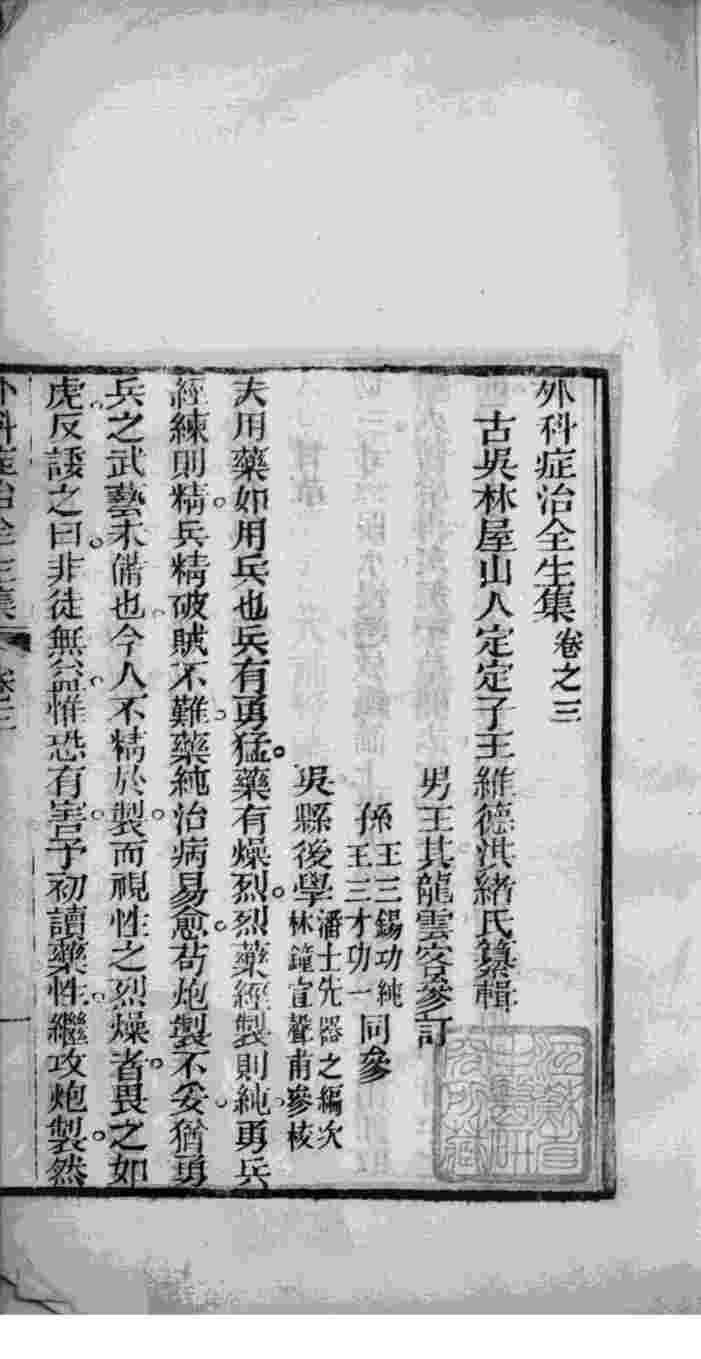 外科症治全生集 卷之三
古吳林屋山人定定子王維德洪緒氏纂輯
男王其龍雲客參訂
孫王三錫功純
王三才功一同參
吳縣後學潘士先器之編次
林鐘宣聲甫參校
夫用藥如用兵也兵有勇猛藥有燥烈烈藥經製則純勇兵
經練則精兵精破賊不難藥純治病易愈茍炮製不妥猶勇
兵之武藝未備也今人不精於製而視性之烈燥者畏之如
虎反諉之曰非徒無益惟恐有害予初讀藥性繼攻炮製然
外科症治全生集 卷三 一
江蘇省中醫研究所藏